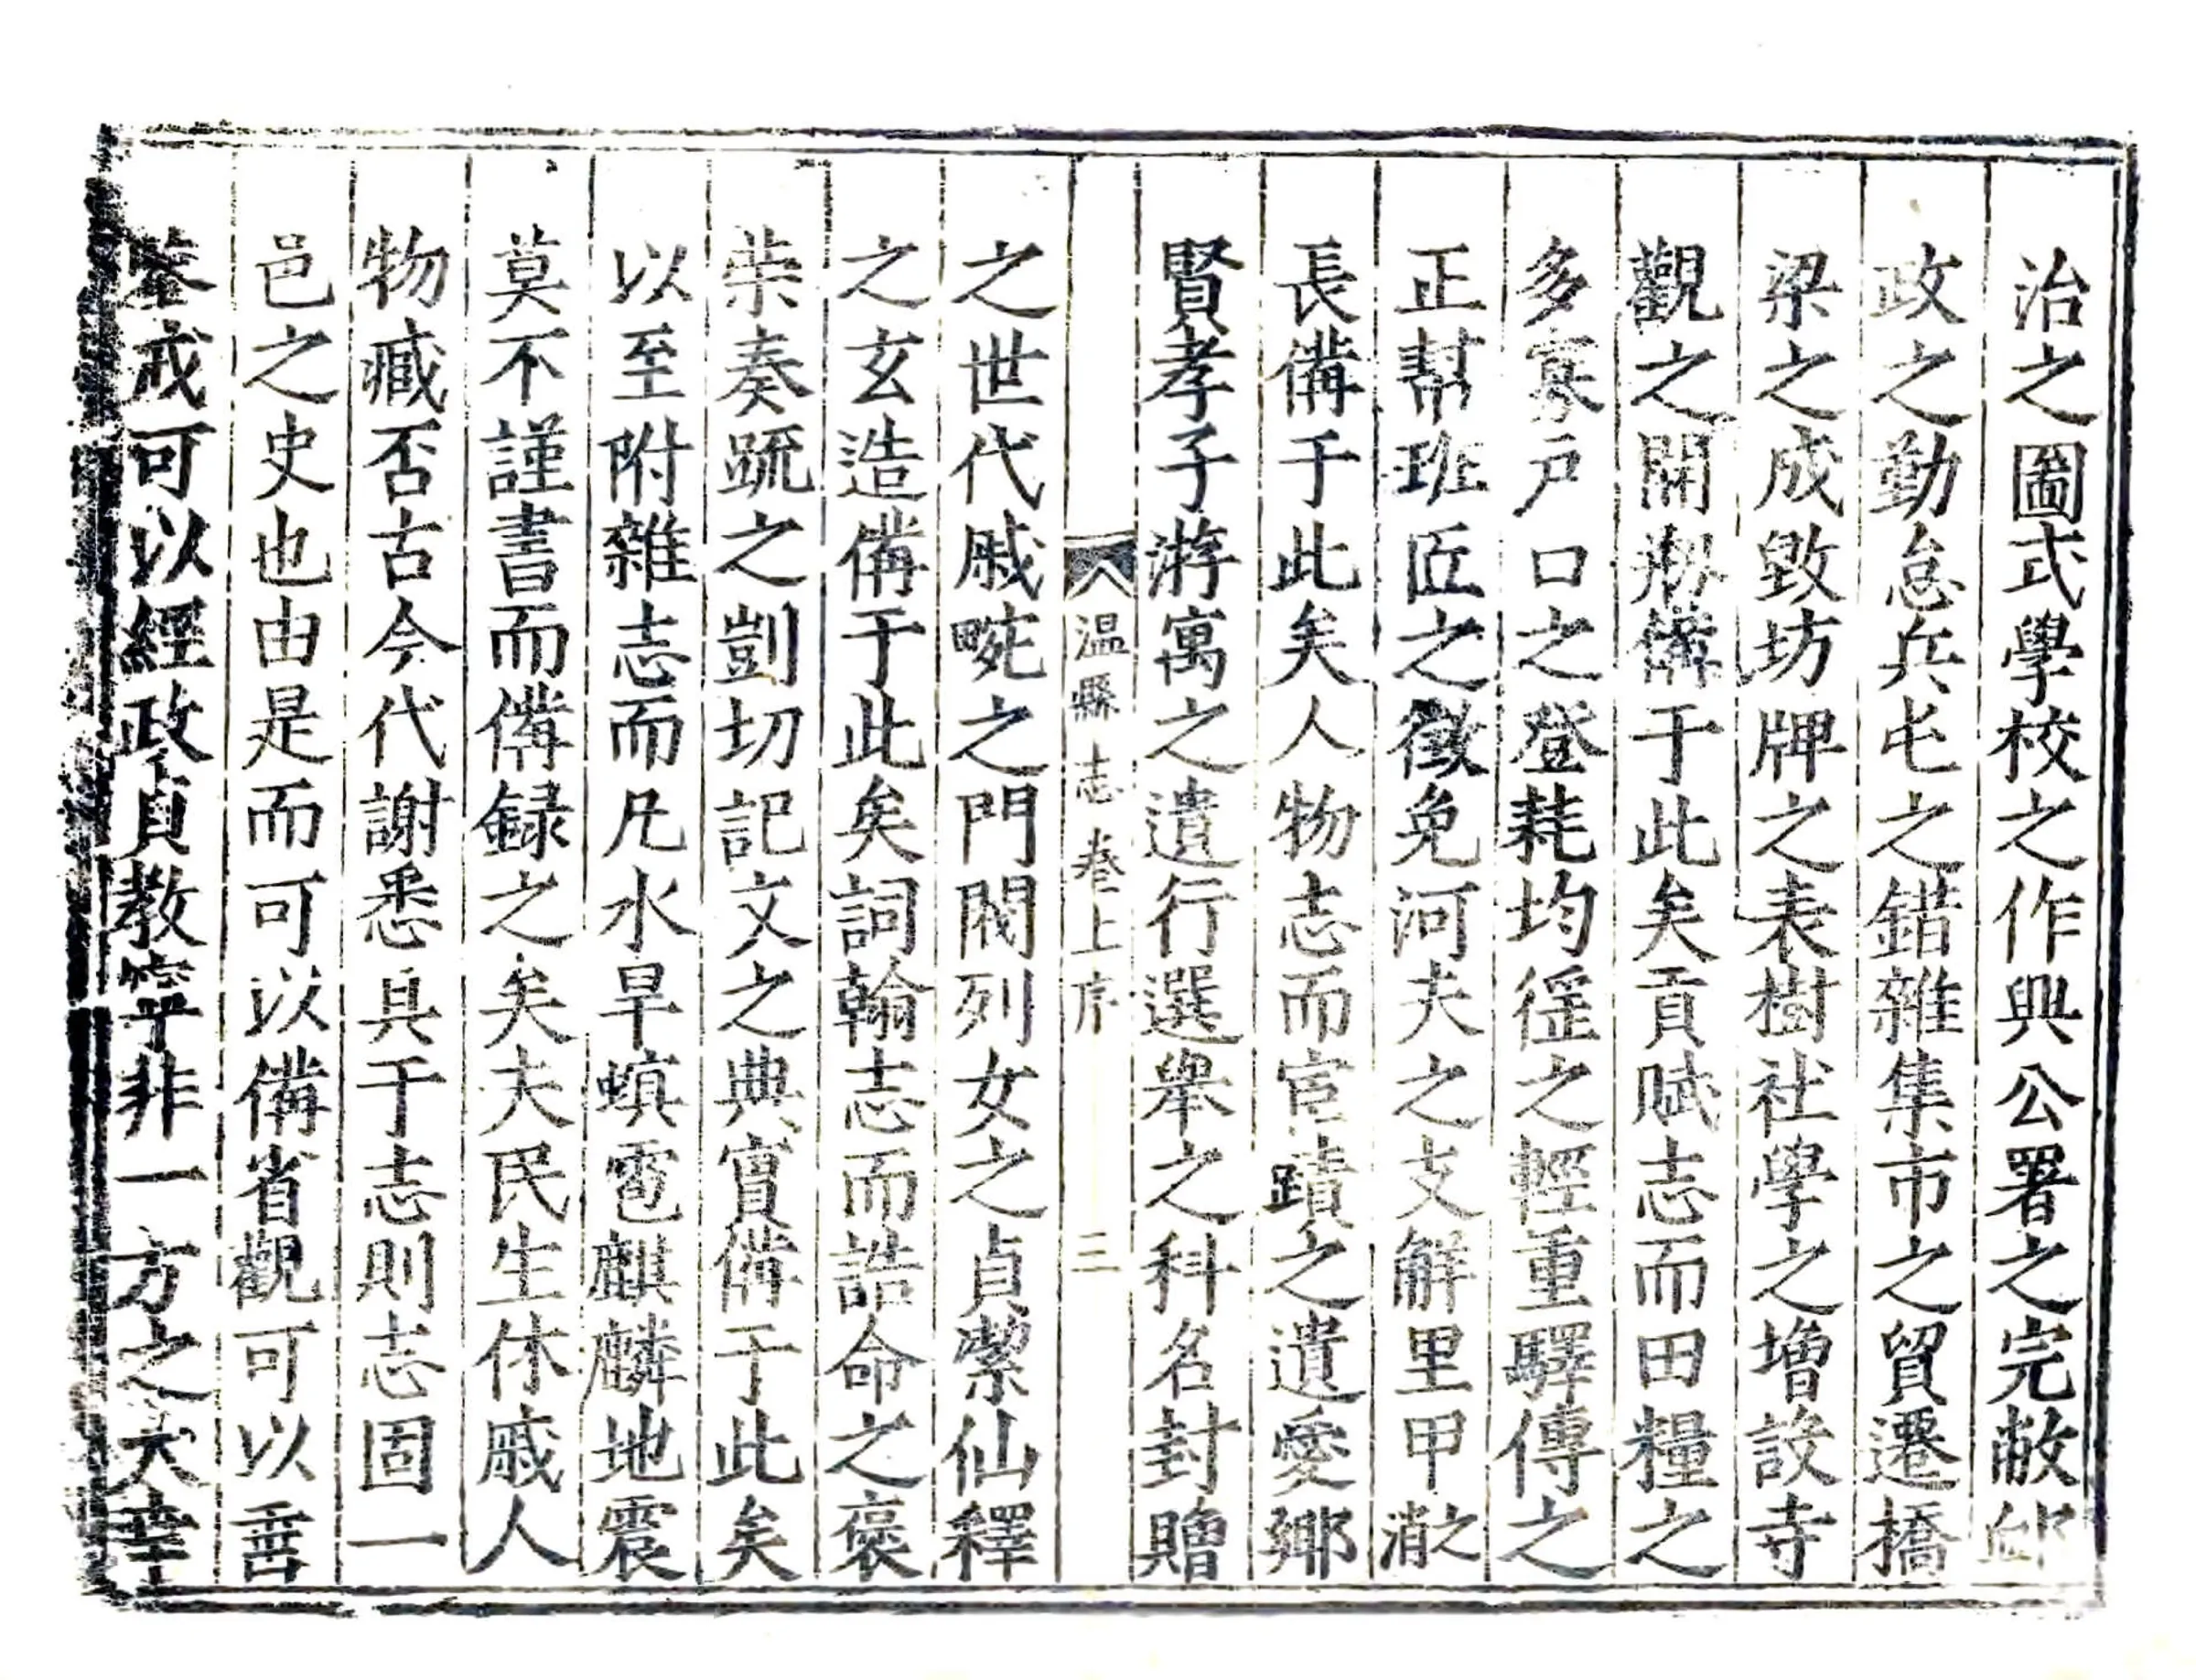 治之圖式學校之作興公署之完敝郵
政之勤怠兵屯之錯雜集市之貿遷橋
梁之成毀坊牌之表樹社學之增設寺
觀之開剏備于此矣貢賦志而田糧之
多寡戶口之登耗均徭之輕重驛傳之
正幫班匠之徵免河夫之支解里甲之
長備于此矣人物志而宦蹟之遺愛鄉
賢孝子游寓之遺行選舉之科名封贈
溫縣志卷上序 三
之世代戚畹之門閥列女之貞潔仙釋
之玄造備于此矣詞翰志而誥命之褒
崇奏疏之剴切記文之典實備于此矣
以至附雜志而凡水旱螟雹麒麟地震
莫不謹書而備録之矣夫民生休戚人
物臧否古今代謝悉具于志則志固一
邑之史也由是而可以備省觀可以垂
鉴戒可以經政貞教寧非一方之大幸